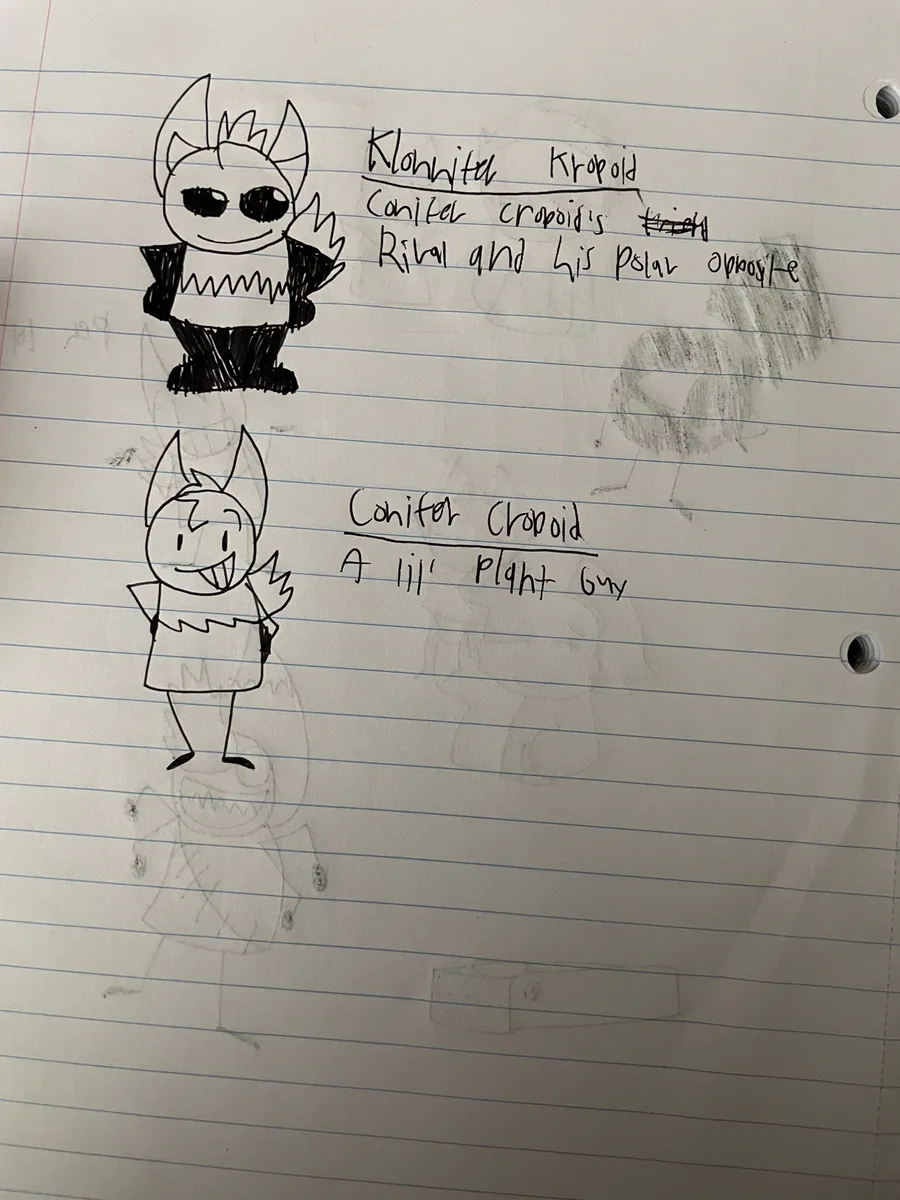 Klonnifer Kropoid
Conifer cropoid's
Rival and his polar opposite
Conifer Cropoid
A lil' plant Guy